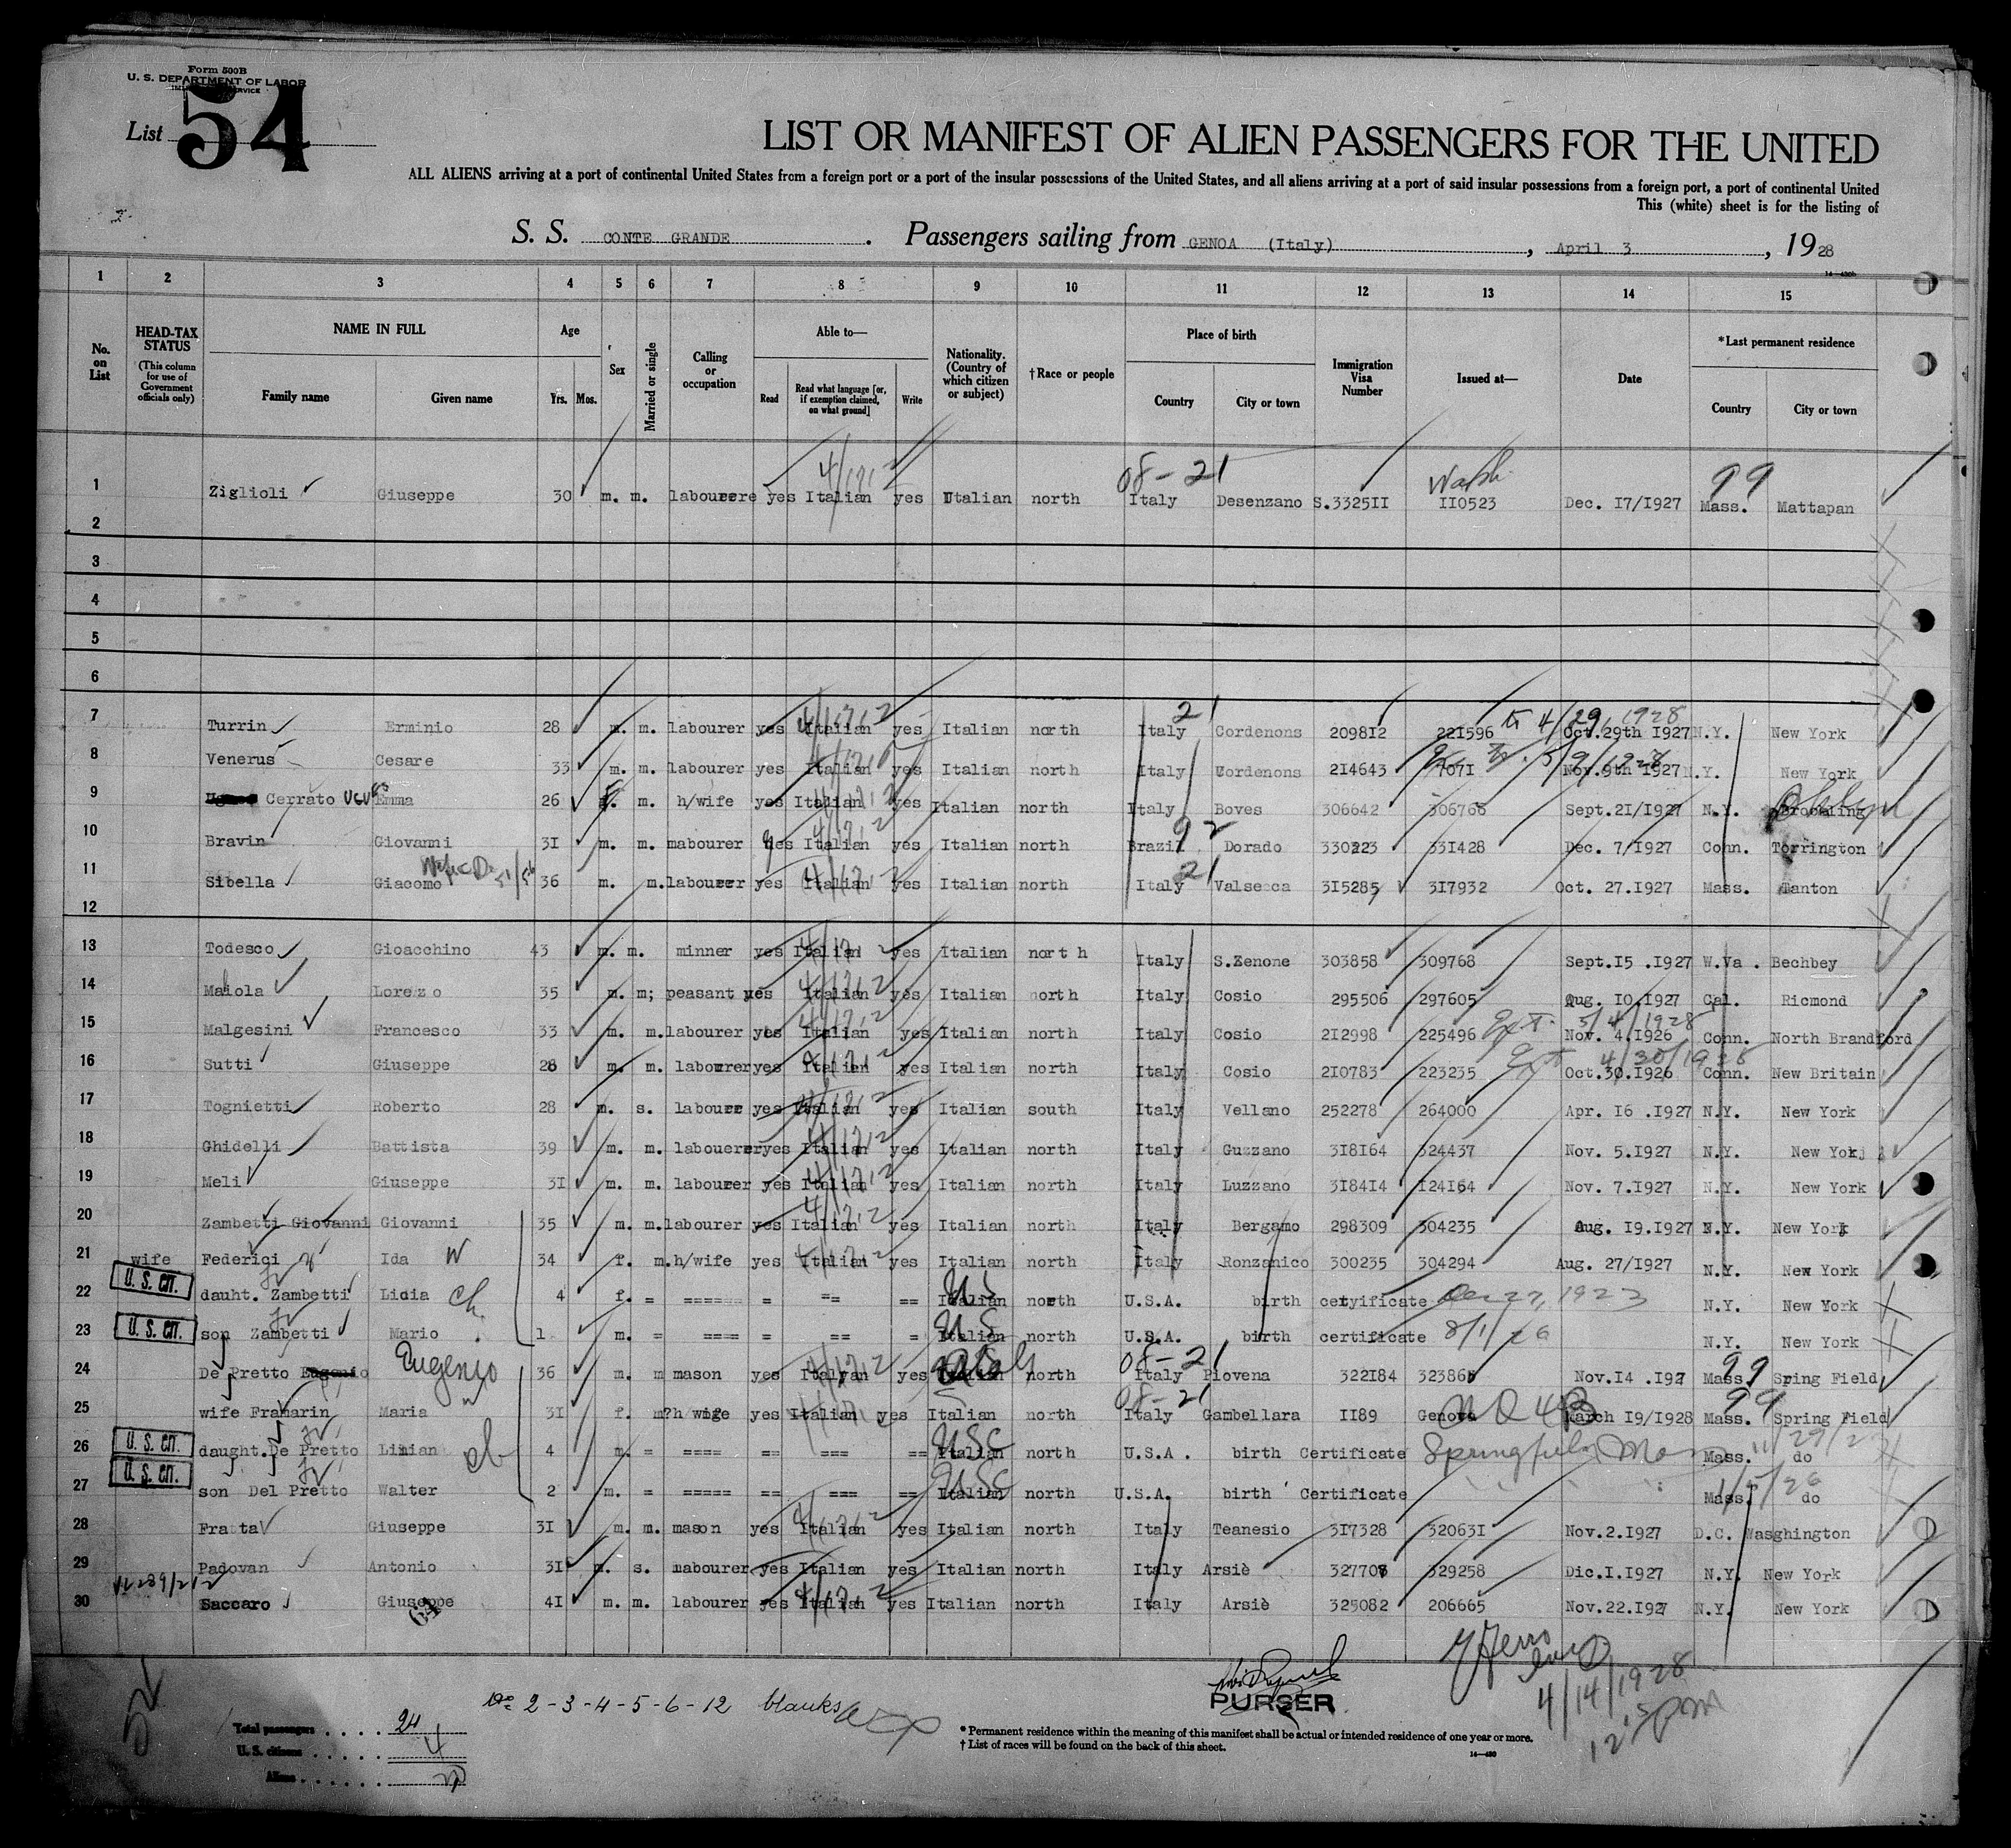 Form 500B
U. S. DEPARTMENT OF LABOR
List 54
LIST OR MANIFEST OF ALIEN PASSENGERS FOR THE UNITED
ALL ALIENS arriving at a port of continental United States from a foreign port or a port of the insular possessions of the United States, and all aliens arriving at a port of said insular possessions from a foreign port, a port of continental United
This (white) sheet is for the listing of
S. S. CONTE GRANDE . Passengers sailing from GENOA (Italy) , April 3 , 1928
1 2 3 4 5 6 7 8 9 10 11 12 13 14 15
No. on List HEAD-TAX STATUS (This column for use of Government officials only) NAME IN FULL Family name Given name Age Yrs. Mos. Sex Married or single Calling or occupation Able to— Read Read what language [or, if exemption claimed, on what ground] Write Nationality. (Country of which citizen or subject) †Race or people Place of birth Country City or town Immigration Visa Number Issued at— Date *Last permanent residence Country City or town
08-21 Wash. 99
1 Ziglioli Giuseppe 30 m. m. labourere yes Italian yes Utalian north Italy Desenzano S.332511 110523 Dec. 17/1927 Mass. Mattapan
2
3
4
5
6
7 Turrin Erminio 28 m. m. labourer yes Italian yes Italian north Italy Cordenons 209812 221596 4/29, 1928 Oct.29th 1927 N.Y. New York
8 Venerus Cesare 33 m. m. labourer yes Italian yes Italian north Italy Cordenons 214643 7071 5/9/1928 Nov.9th 1927 N.Y. New York
9 Cerrato Emma 26 m. h/wife yes Italian yes Italian north Italy Boves 306642 306768 Sept.21/1927 N.Y. Brookling
10 Bravin Giovanni 31 m. m. mabourer yes Italian yes Italian north Brazil 92 Dorado 330223 331428 Dec. 7/1927 Conn. Torrington
11 Sibella Giacomo 36 m. m. labourer yes Italian yes Italian north Italy 21 Valsecca 315285 317932 Oct. 27.1927 Mass. Tanton
12
13 Todesco Gioacchino 43 m. m. minner yes Italian yes Italian north Italy S.Zenone 303858 309768 Sept.15 .1927 W.Va . Bechbey
14 Maiola Lorezo 35 m. m; peasant yes Italian yes Italian north Italy Cosio 295506 297605 Aug. 10.1927 Cal. Ricmond
15 Malgesini Francesco 33 m. m. labourer yes Italian yes Italian north Italy Cosio 212998 225496 Ext. 5/4/1928 Nov. 4.1926 Conn. North Brandford
16 Sutti Giuseppe 28 m. m. labourer yes Italian yes Italian north Italy Cosio 210783 223235 Ext 4/30/1928 Oct.30.1926 Conn. New Britain
17 Tognietti Roberto 28 m. s. labourer yes Italian yes Italian south Italy Vellano 252278 264000 Apr. 16 .1927 N.Y. New York
18 Ghidelli Battista 39 m. m. labouerer yes Italian yes Italian north Italy Guzzano 318164 324437 Nov. 5.1927 N.Y. New York
19 Meli Giuseppe 31 m. m. labourer yes Italian yes Italian north Italy Luzzano 318414 124164 Nov. 7.1927 N.Y. New York
20 Zambetti Giovanni Giovanni 35 m. m. labourer yes Italian yes Italian north Italy Bergamo 298309 304235 Aug. 19.1927 N.Y. New York
21 wife Federici Ida W 34 f. m. h/wife yes Italian yes Italian north Italy Ronzanico 300235 304294 Aug. 27/1927 N.Y. New York
U. S. CIT.
22 dauht. Zambetti Licia ch. 4 f. = ====== = == == Italian US north U.S.A. birth cetyificate Dec 27, 1923 N.Y. New York
U. S. CIT.
23 son Zambetti Mario 1 m. = ==== = == = Italian US north U.S.A. birth certificate 8/1/26 N.Y. New York
24 De Pretto Eugenio 36 m. m mason yes Italyan yes Italian Italy north Italy 08-21 Piovena 322184 323865 Nov.14 .192 Mass 99 Spring Field
25 wife Framarin Maria w 31 f. m? h wige yes Italian yes Italian north Italy 08-21 Gambellara 1189 Genova NQ 4B March 19/1928 Mass. 99 Spring Field
U. S. CIT.
26 daught. De Pretto Linian ch 4 m. = ==== == === == Italian USC north U.S.A . birth Certificate Springfield, Mass 11/29/23 Mass. do
U. S. CIT.
27 son Del Pretto Walter 2 m. = ===== == === == Italian USC north U.S.A. birth Certificate 1/5/26 Mass. do
28 Fratta Giuseppe 31 m. m. mason yes Italian yes Italian north Italy Teanesio 317328 320631 Nov.2.1927 D.C. Wasghington
29 Padovan Antonio 31 m. s. mabourer yes Italian yes Italian north Italy Arsiè 327708 329258 Dic.1.1927 N.Y. New York
30 Saccaro Giuseppe 41 m. m. labourer yes Italian yes Italian north Italy Arsiè 325082 206665 Nov.22.192 N.Y. New York
64
4/14/1928
12 PM
No 2-3-4-5-6-12 blanks
PURSER
Total passengers .... 24
U. S. citizens ..... 4
Aliens ...... 20
* Permanent residence within the meaning of this manifest shall be actual or intended residence of one year or more.
† List of races will be found on the back of this sheet.
14—430